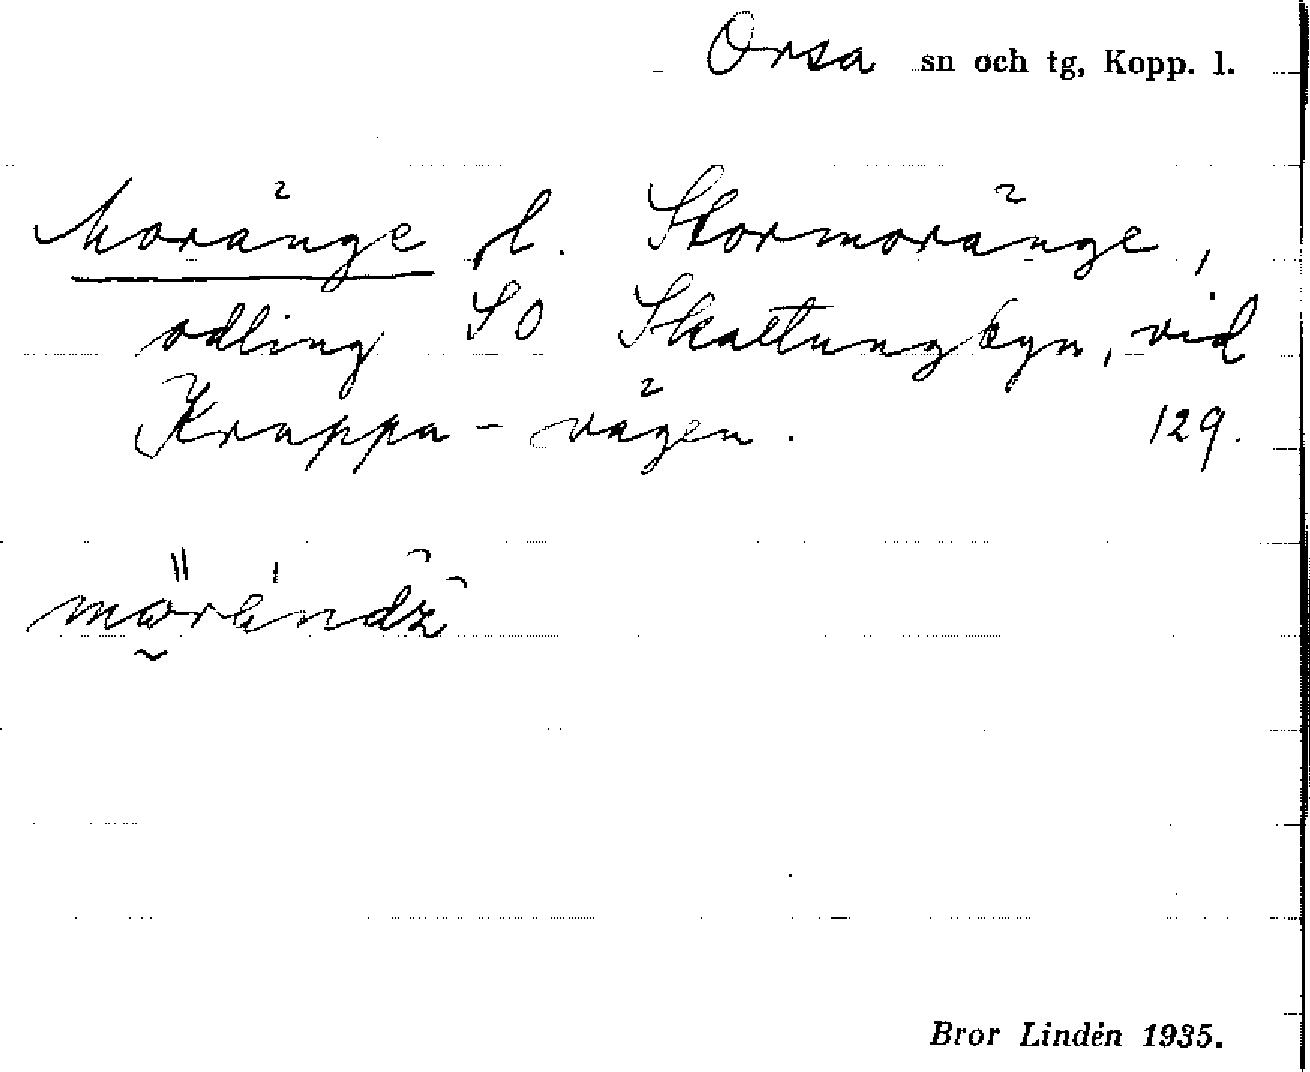 Orsa sn och tg, Kopp. l.
Moränge, l. Stormoränge,
odling SO Skattungbyn, vid
Kruppa-vägen. 129.
Bror Lindén 1935.